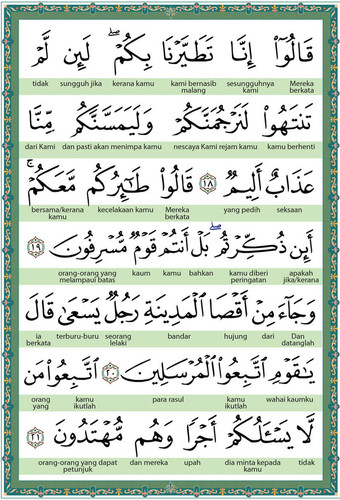 قَالُوٓا۟ إِنَّا تَطَيَّرْنَا بِكُمْ ۖ لَئِن لَّمْ
tidak sungguh jika kerana kamu kami bernasib malang sesungguhnya kami Mereka berkata
تَنتَهُوا۟ لَنَرْجُمَنَّكُمْ وَلَيَمَسَّنَّكُم مِّنَّا
dari Kami dan pasti akan menimpa kamu nescaya Kami rejam kamu kamu berhenti
عَذَابٌ أَلِيمٌ ١٨ قَالُوا۟ طَـٰٓئِرُكُم مَّعَكُمْ ۚ
bersama/kerana kamu kecelakaan kamu Mereka berkata yang pedih seksaan
أَئِن ذُكِّرْتُم ۖ بَلْ أَنتُمْ قَوْمٌ مُّسْرِفُونَ ١٩
orang-orang yang melampaui batas kaum kamu bahkan kamu diberi peringatan apakah jika/kerana
وَجَآءَ مِنْ أَقْصَا ٱلْمَدِينَةِ رَجُلٌ يَسْعَىٰ قَالَ
ia berkata terburu-buru seorang lelaki bandar hujung dari Dan datanglah
يَـٰقَوْمِ ٱتَّبِعُوا۟ ٱلْمُرْسَلِينَ ٢٠ ٱتَّبِعُوا۟ مَن
orang yang kamu ikutlah para rasul kamu ikutlah wahai kaumku
لَّا يَسْـَٔلُكُمْ أَجْرًا وَهُم مُّهْتَدُونَ ٢١
orang-orang yang dapat petunjuk dan mereka upah dia minta kepada kamu tidak